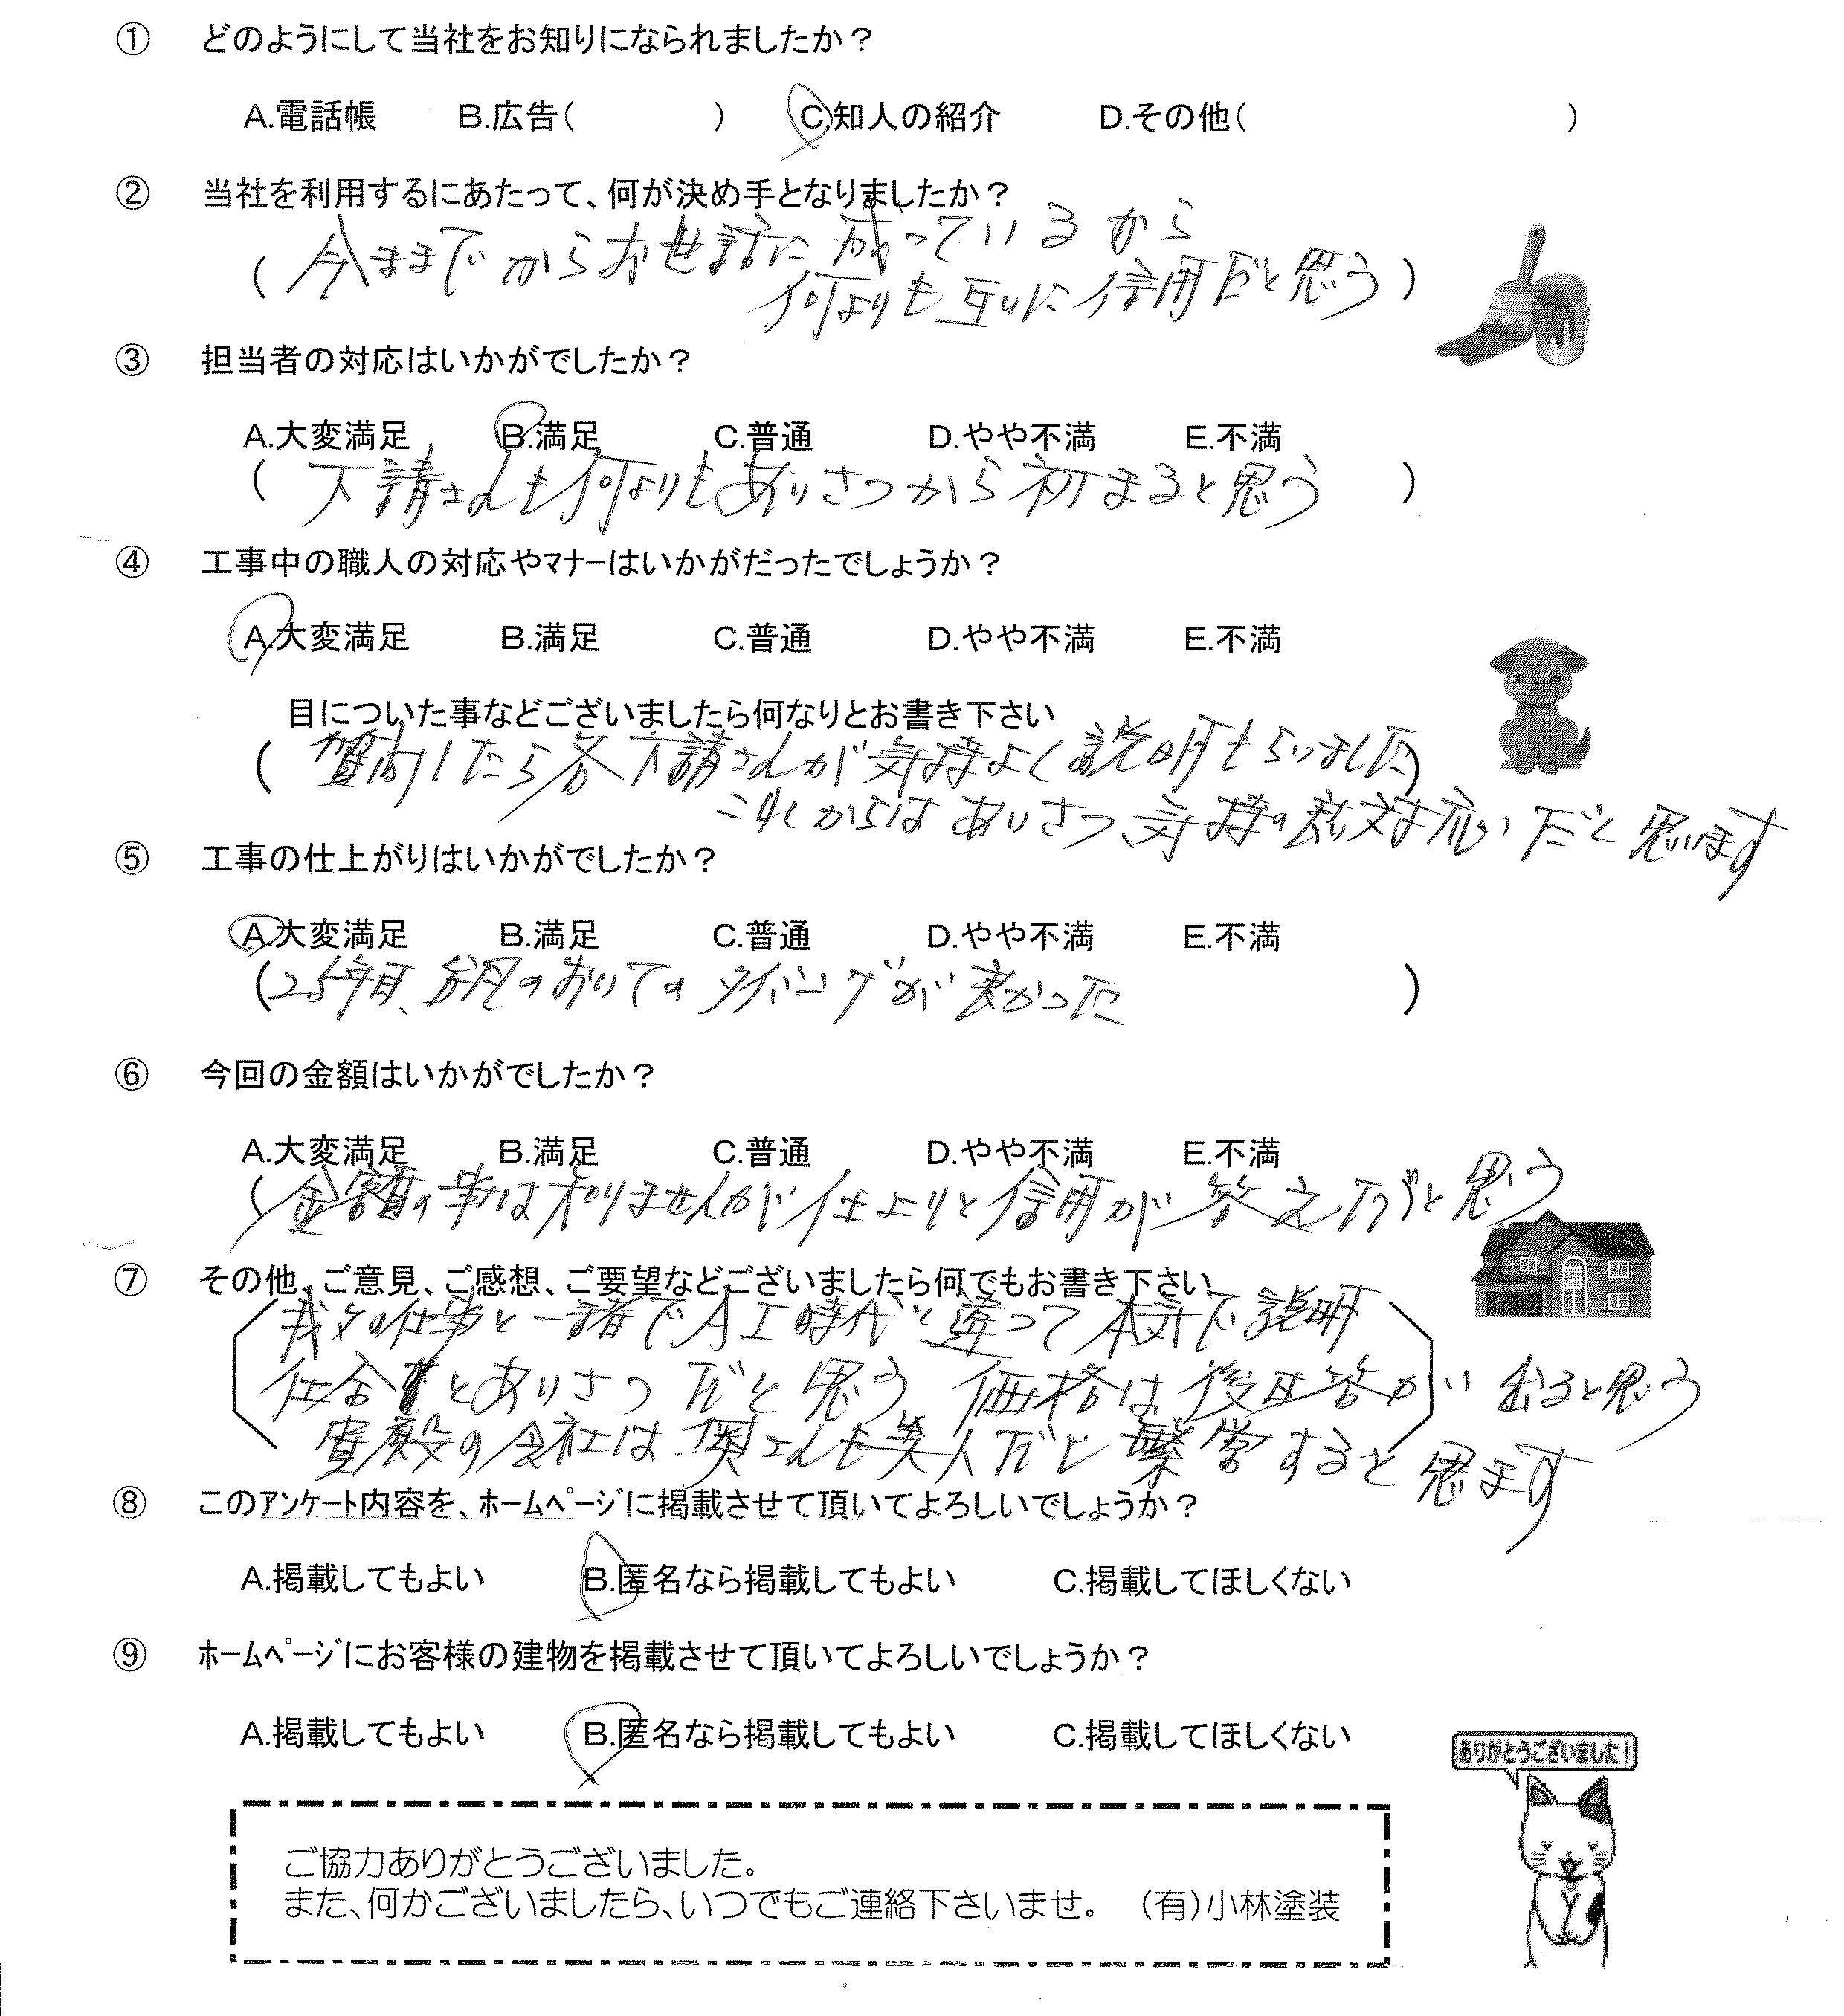 ① どのようにして当社をお知りになられましたか?
A.電話帳 B.広告( ) C.知人の紹介 D.その他( )
② 当社を利用するにあたって、何が決め手となりましたか?
( 今ままでからお世話に成っているから
何よりも互いに信用だと思う )
③ 担当者の対応はいかがでしたか?
A.大変満足 B.満足 C.普通 D.やや不満 E.不満
( 下請さんも何よりもありさつから初まると思う )
④ 工事中の職人の対応やﾏﾅｰはいかがだったでしょうか?
A.大変満足 B.満足 C.普通 D.やや不満 E.不満
目についた事などございましたら何なりとお書き下さい
( 質問したら各下請さんが気持よく説明もらいました )
これからはありさつ、気持の 対応いだと思います
⑤ 工事の仕上がりはいかがでしたか?
A.大変満足 B.満足 C.普通 D.やや不満 E.不満
( 25年目、 のおいてのタイミングが良かった )
⑥ 今回の金額はいかがでしたか?
A.大変満足 B.満足 C.普通 D.やや不満 E.不満
( 金額の事は わりませんが仕上りと信用が答えだと思う
⑦ その他、ご意見、ご感想、ご要望などございましたら何でもお書き下さい
我々の仕事と一諸で人工時代と違って 説明
とありさつだと思う 価格は後日答がい出ると思う
貴殿の会社は奥さんも美人だし繁営すると思ます
⑧ このｱﾝｹｰﾄ内容を、ﾎｰﾑﾍﾟｰｼﾞに掲載させて頂いてよろしいでしょうか?
A.掲載してもよい B.匿名なら掲載してもよい C.掲載してほしくない
⑨ ﾎｰﾑﾍﾟｰｼﾞにお客様の建物を掲載させて頂いてよろしいでしょうか?
A.掲載してもよい B.匿名なら掲載してもよい C.掲載してほしくない
ありがとうございました!
ご協力ありがとうございました。
また、何かございましたら、いつでもご連絡下さいませ。 (有)小林塗装